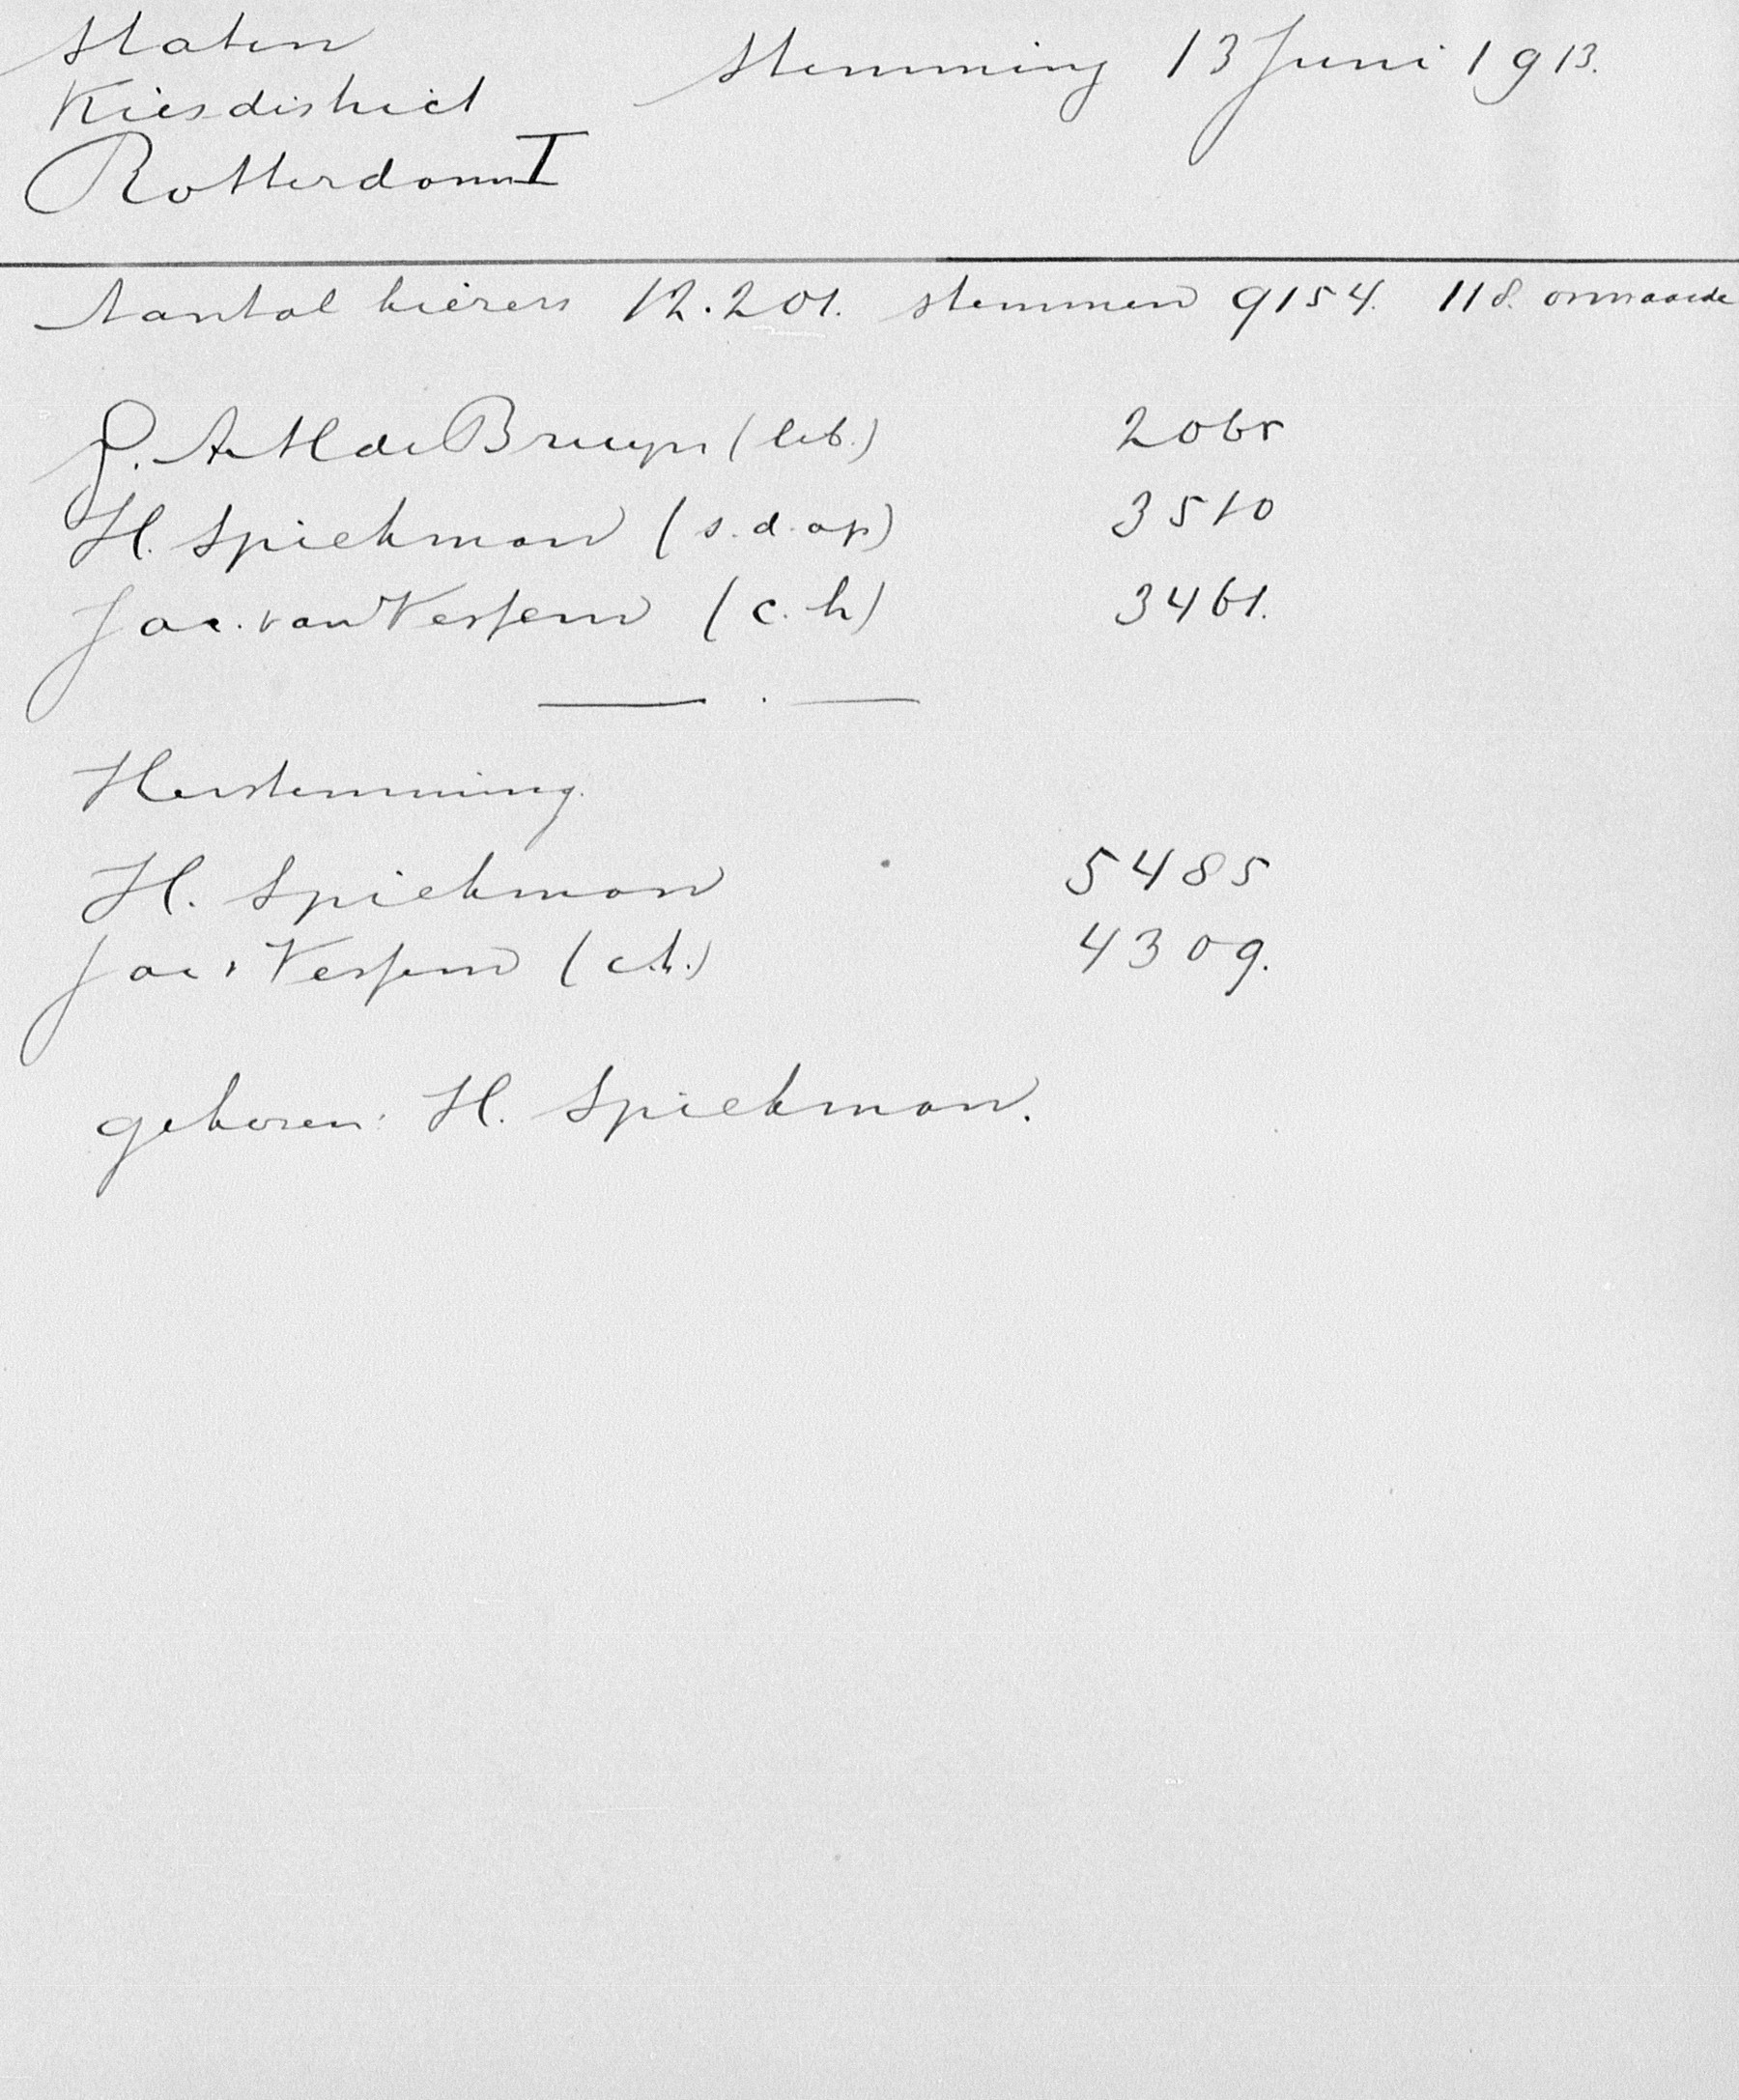 Staten
Stemming 13 Juni 1913.
Kiesdistrict
Rotterdam I
Aantal kiezers 12.201. stemmen 9154. 118. onwaarde
J. A. H de Bruyn (lib.) 2065
H. Spiekman (s.d.ap) 3510
Jac. van Vessem (c.h) 3461.
Herstemming.
H. Spiekman 5485
Jac v Vessem (c.h.) 4309.
gekozen: H. Spiekman.